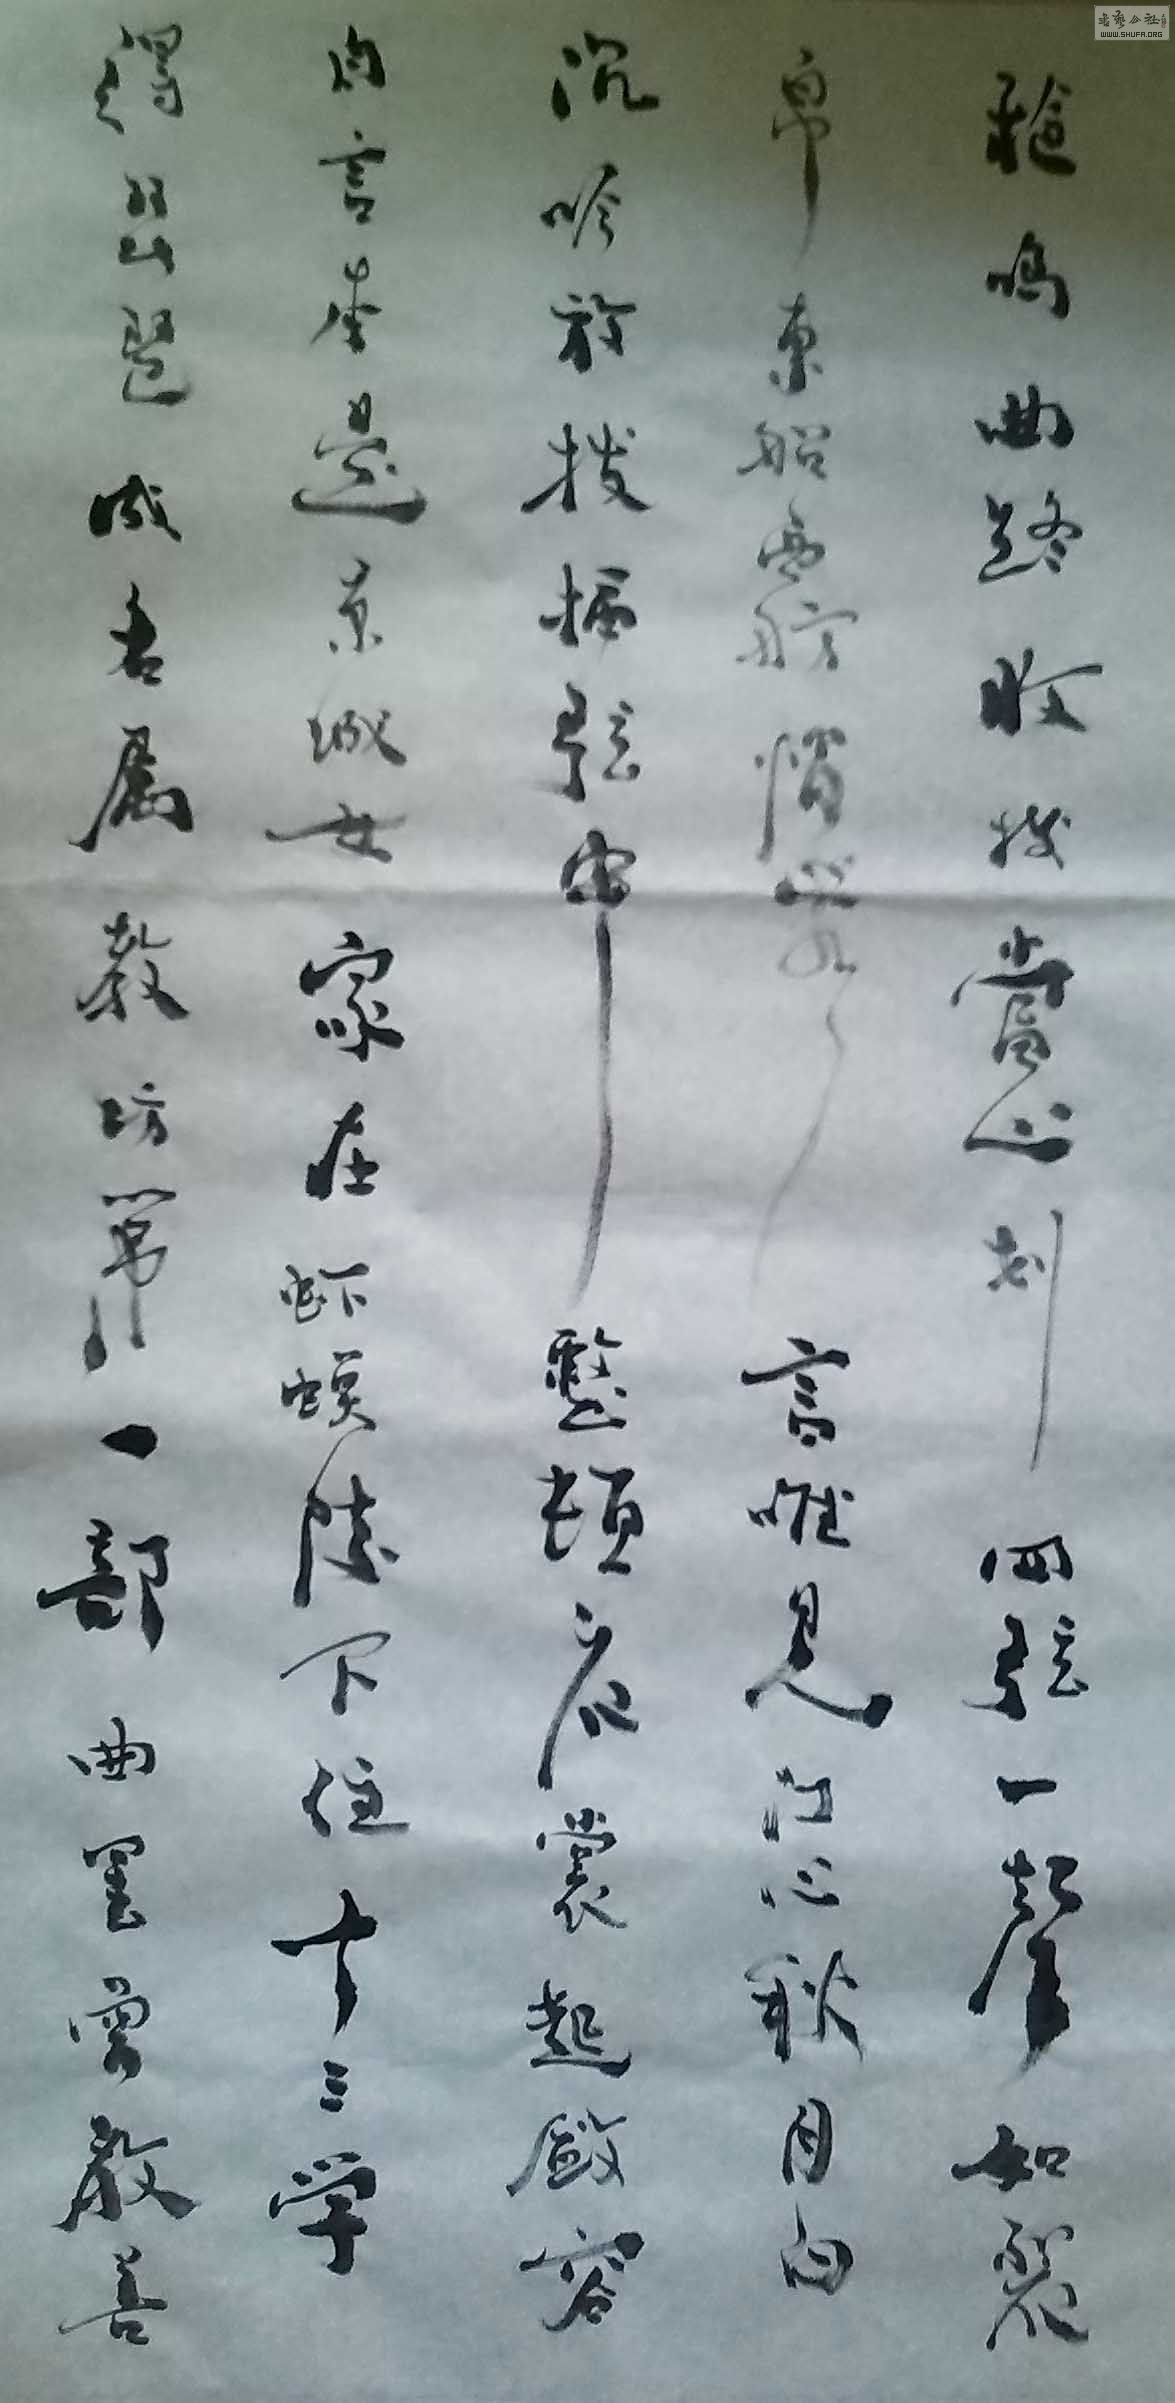 枪鸣曲终收拨当心划四弦一声如裂
帛东船西舫悄无言唯见江心秋月白
沉吟放拨插弦中整顿衣裳起敛容
自言本是京城女家在虾蟆陵下住十三学
得琵琶成名属教坊第一部曲罢曾教善
WWW.SHUFA.ORG